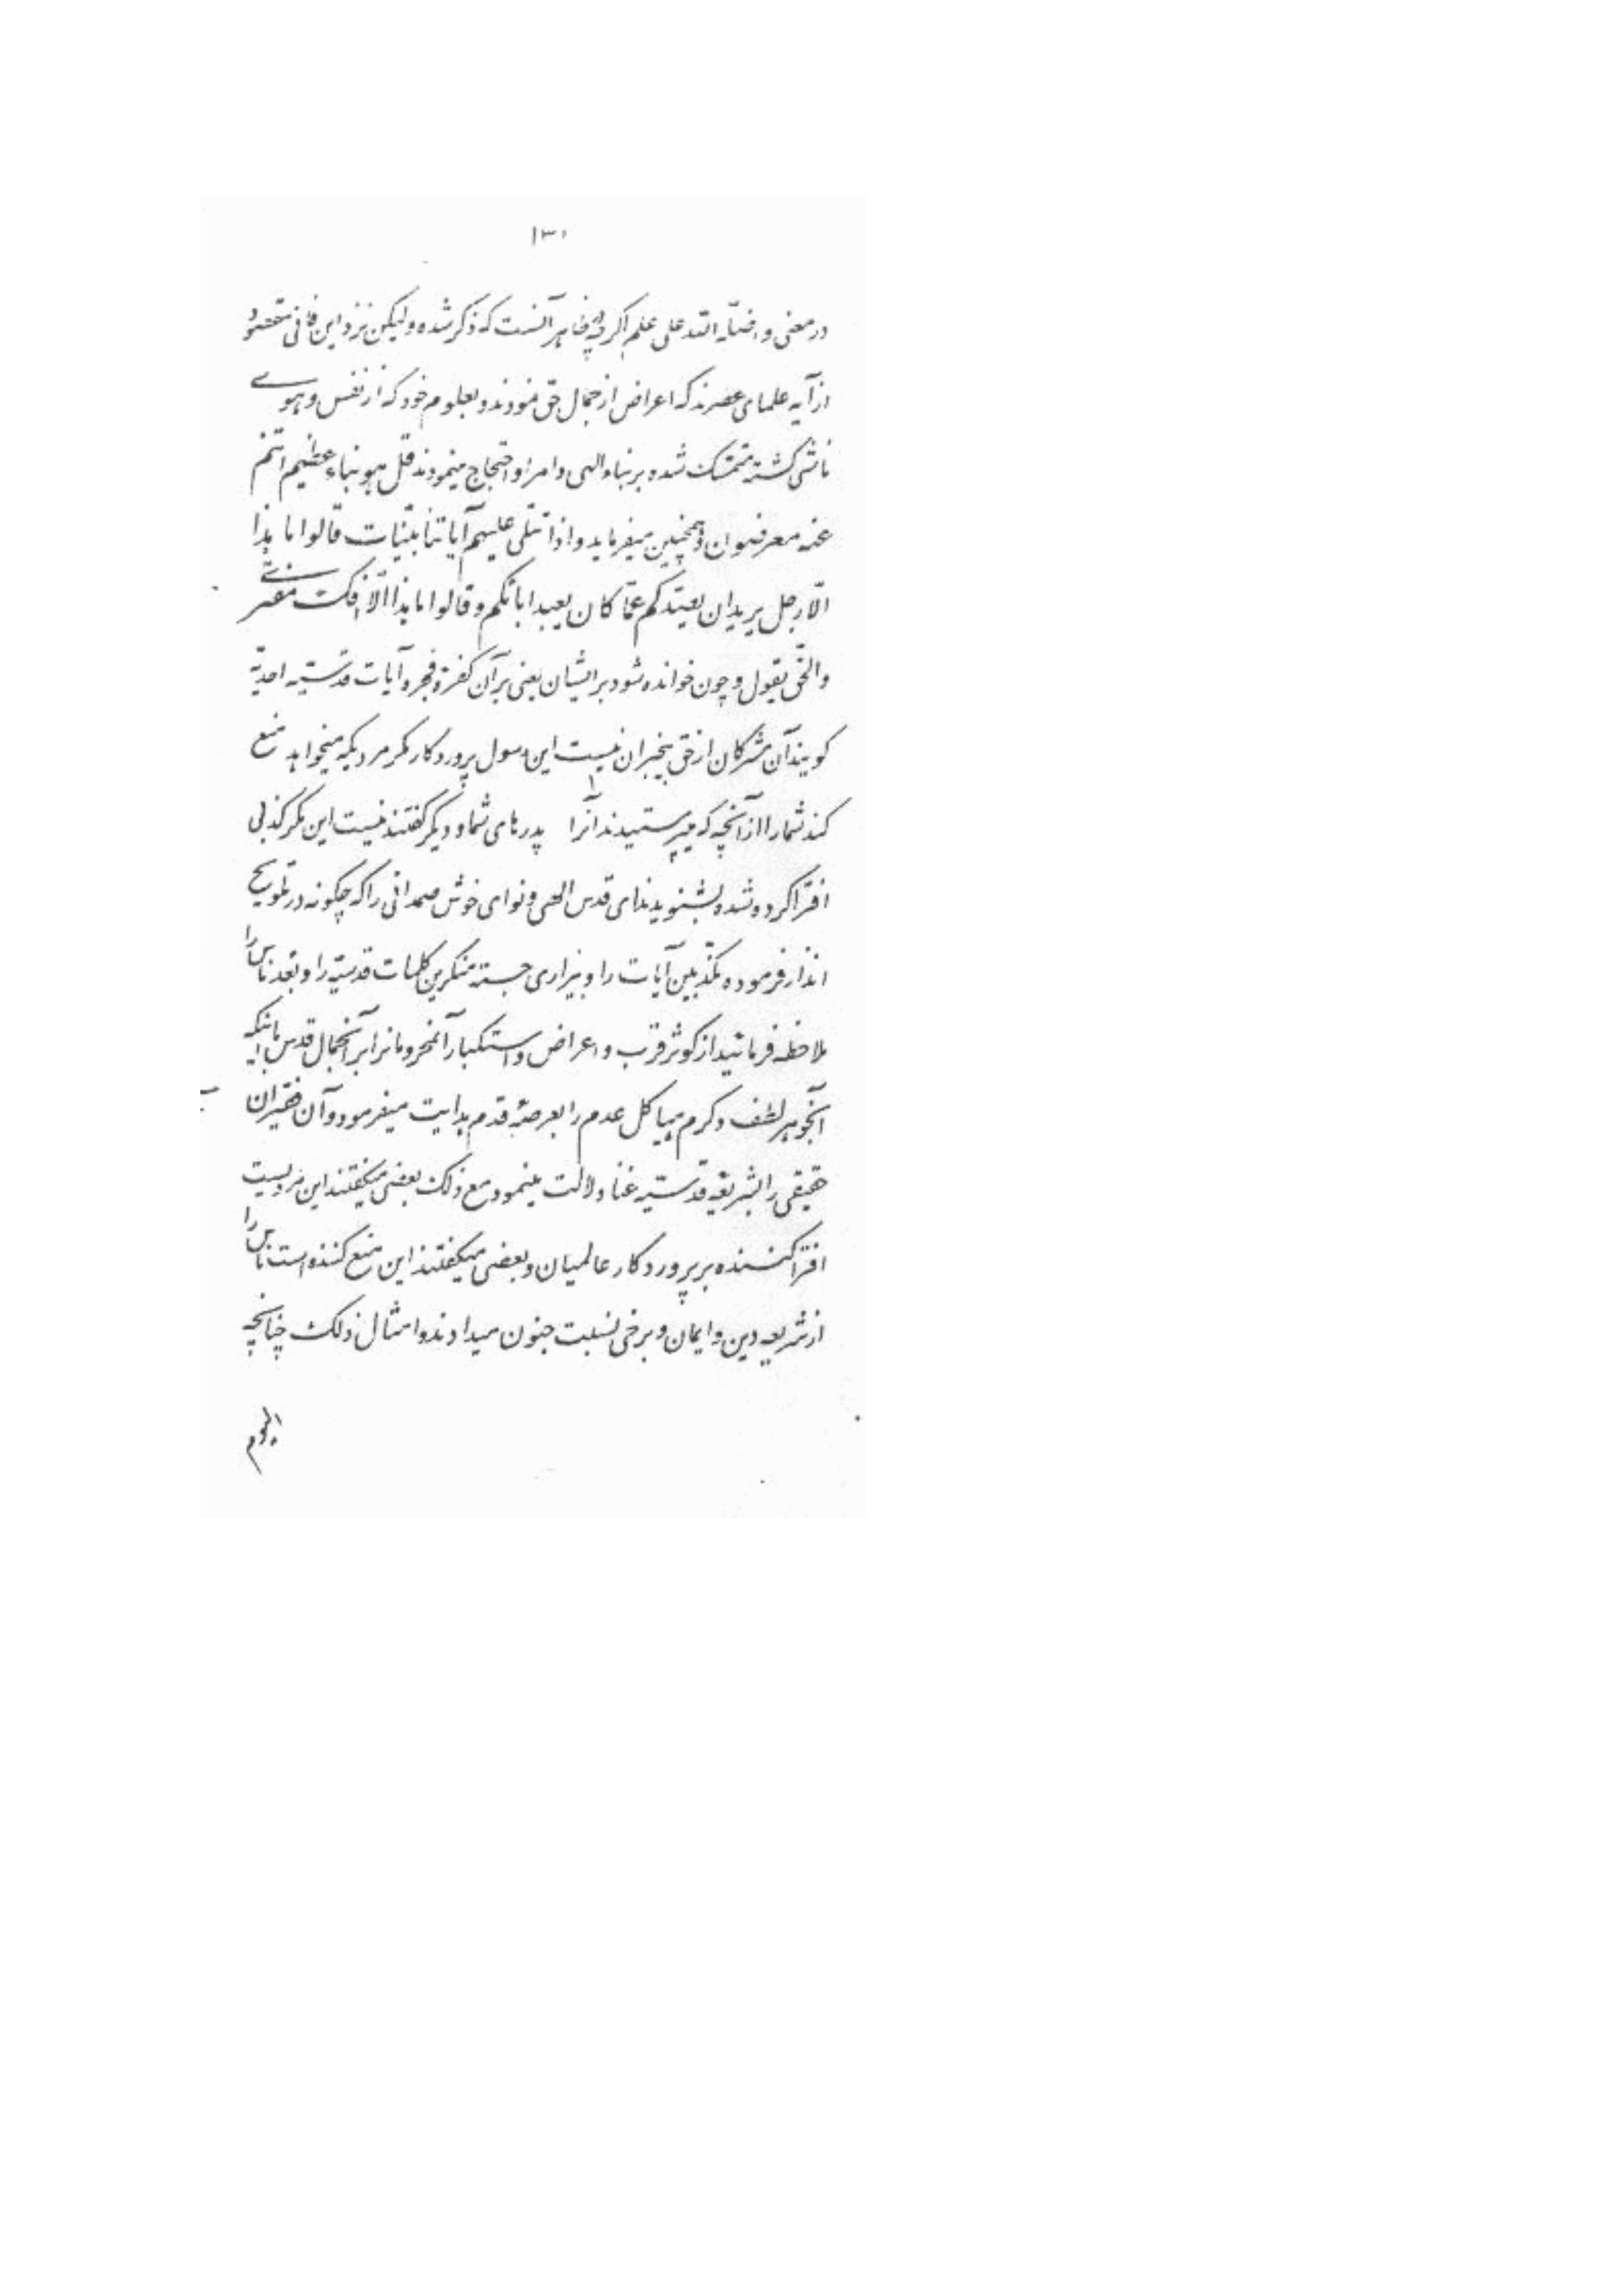 ۱۳۰
در معنی و اضلّه الله علی علم اگرچه ظاهر آنست که ذکر شده ولیکن نزد این فانی مقصود
از آیه علمای عصرند که اعراض از جمال حق نمودند و بعلوم خود که از نفس و هوی
ناشی گشته متمسّک شده بر نباء الهی و امر او احتجاج مینمودند قل هو نباء عظیم انتم
عنه معرضون و همچنین میفرماید و اذا تتلی علیهم آیاتنا بیّنات قالوا ما هذا
الّا رجل یرید ان یصدّکم عمّا کان یعبد ابائکم و قالوا ما هذا الّا افک مفتری
و الحّق یقول و چون خوانده شود بر ایشان یعنی بر آن کفرۀ فجره آیات قدسیّه احدیّه
گویند آن مشرکان از حق بیخبران نیست این رسول پروردگار مگر مردیکه میخواهد منع
کند شما را از آنچه که میپرستیدند آنرا پدرهای شما و دیگر گفتند نیست این مگر کذبی
افترا کرده شده بشنوید ندای قدس الهی و نوای خوش صمدانی را که چگونه در تلویح
انذار فرموده مکذّبین آیات را و بیزاری جسته منکرین کلمات قدسیّه را و بُعد ناس را
ملاحظه فرمائید از کوثر قرب و اعراض و استکبار آنمحرومانرا بر آنجمال قدس با اینکه
آنجوهر لطف و کرم هیاکل عدم را بعرصۀ قدم هدایت میفرمود و آن فقیران
حقیقی را بشریعۀ قدسیّه غنا دلالت مینمود مع ذلک بعضی میگفتند این مردیست
افترا کننده بر پروردگار عالمیان و بعضی میگفتند این منع کننده است ناس را
از شریعه دین و ایمان و برخی نسبت جنون میدادند و امثال ذلک چنانچه
الیوم